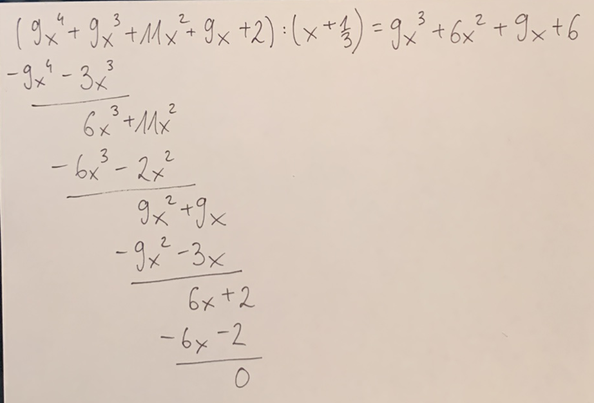 (9x⁴ + 9x³ + 11x² + 9x + 2) : (x + 1/3) = 9x³ + 6x² + 9x + 6
-9x⁴ - 3x³
6x³ + 11x²
-6x³ - 2x²
9x² + 9x
-9x² - 3x
6x + 2
-6x - 2
0